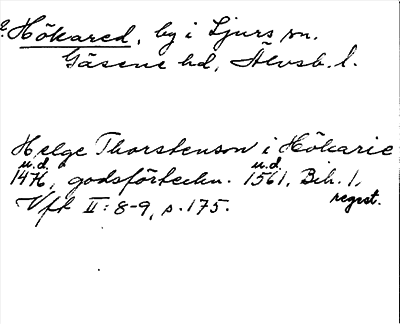 ? Hökared, by i Ljurs sn.
Gäsene hd, Älvsb. l.
Helge Thorstenson i Hökarie
u.d. u.d.
1476, godsförteckn. 1561, Bih. 1,
regist.
Vft II: 8-9, s. 175.